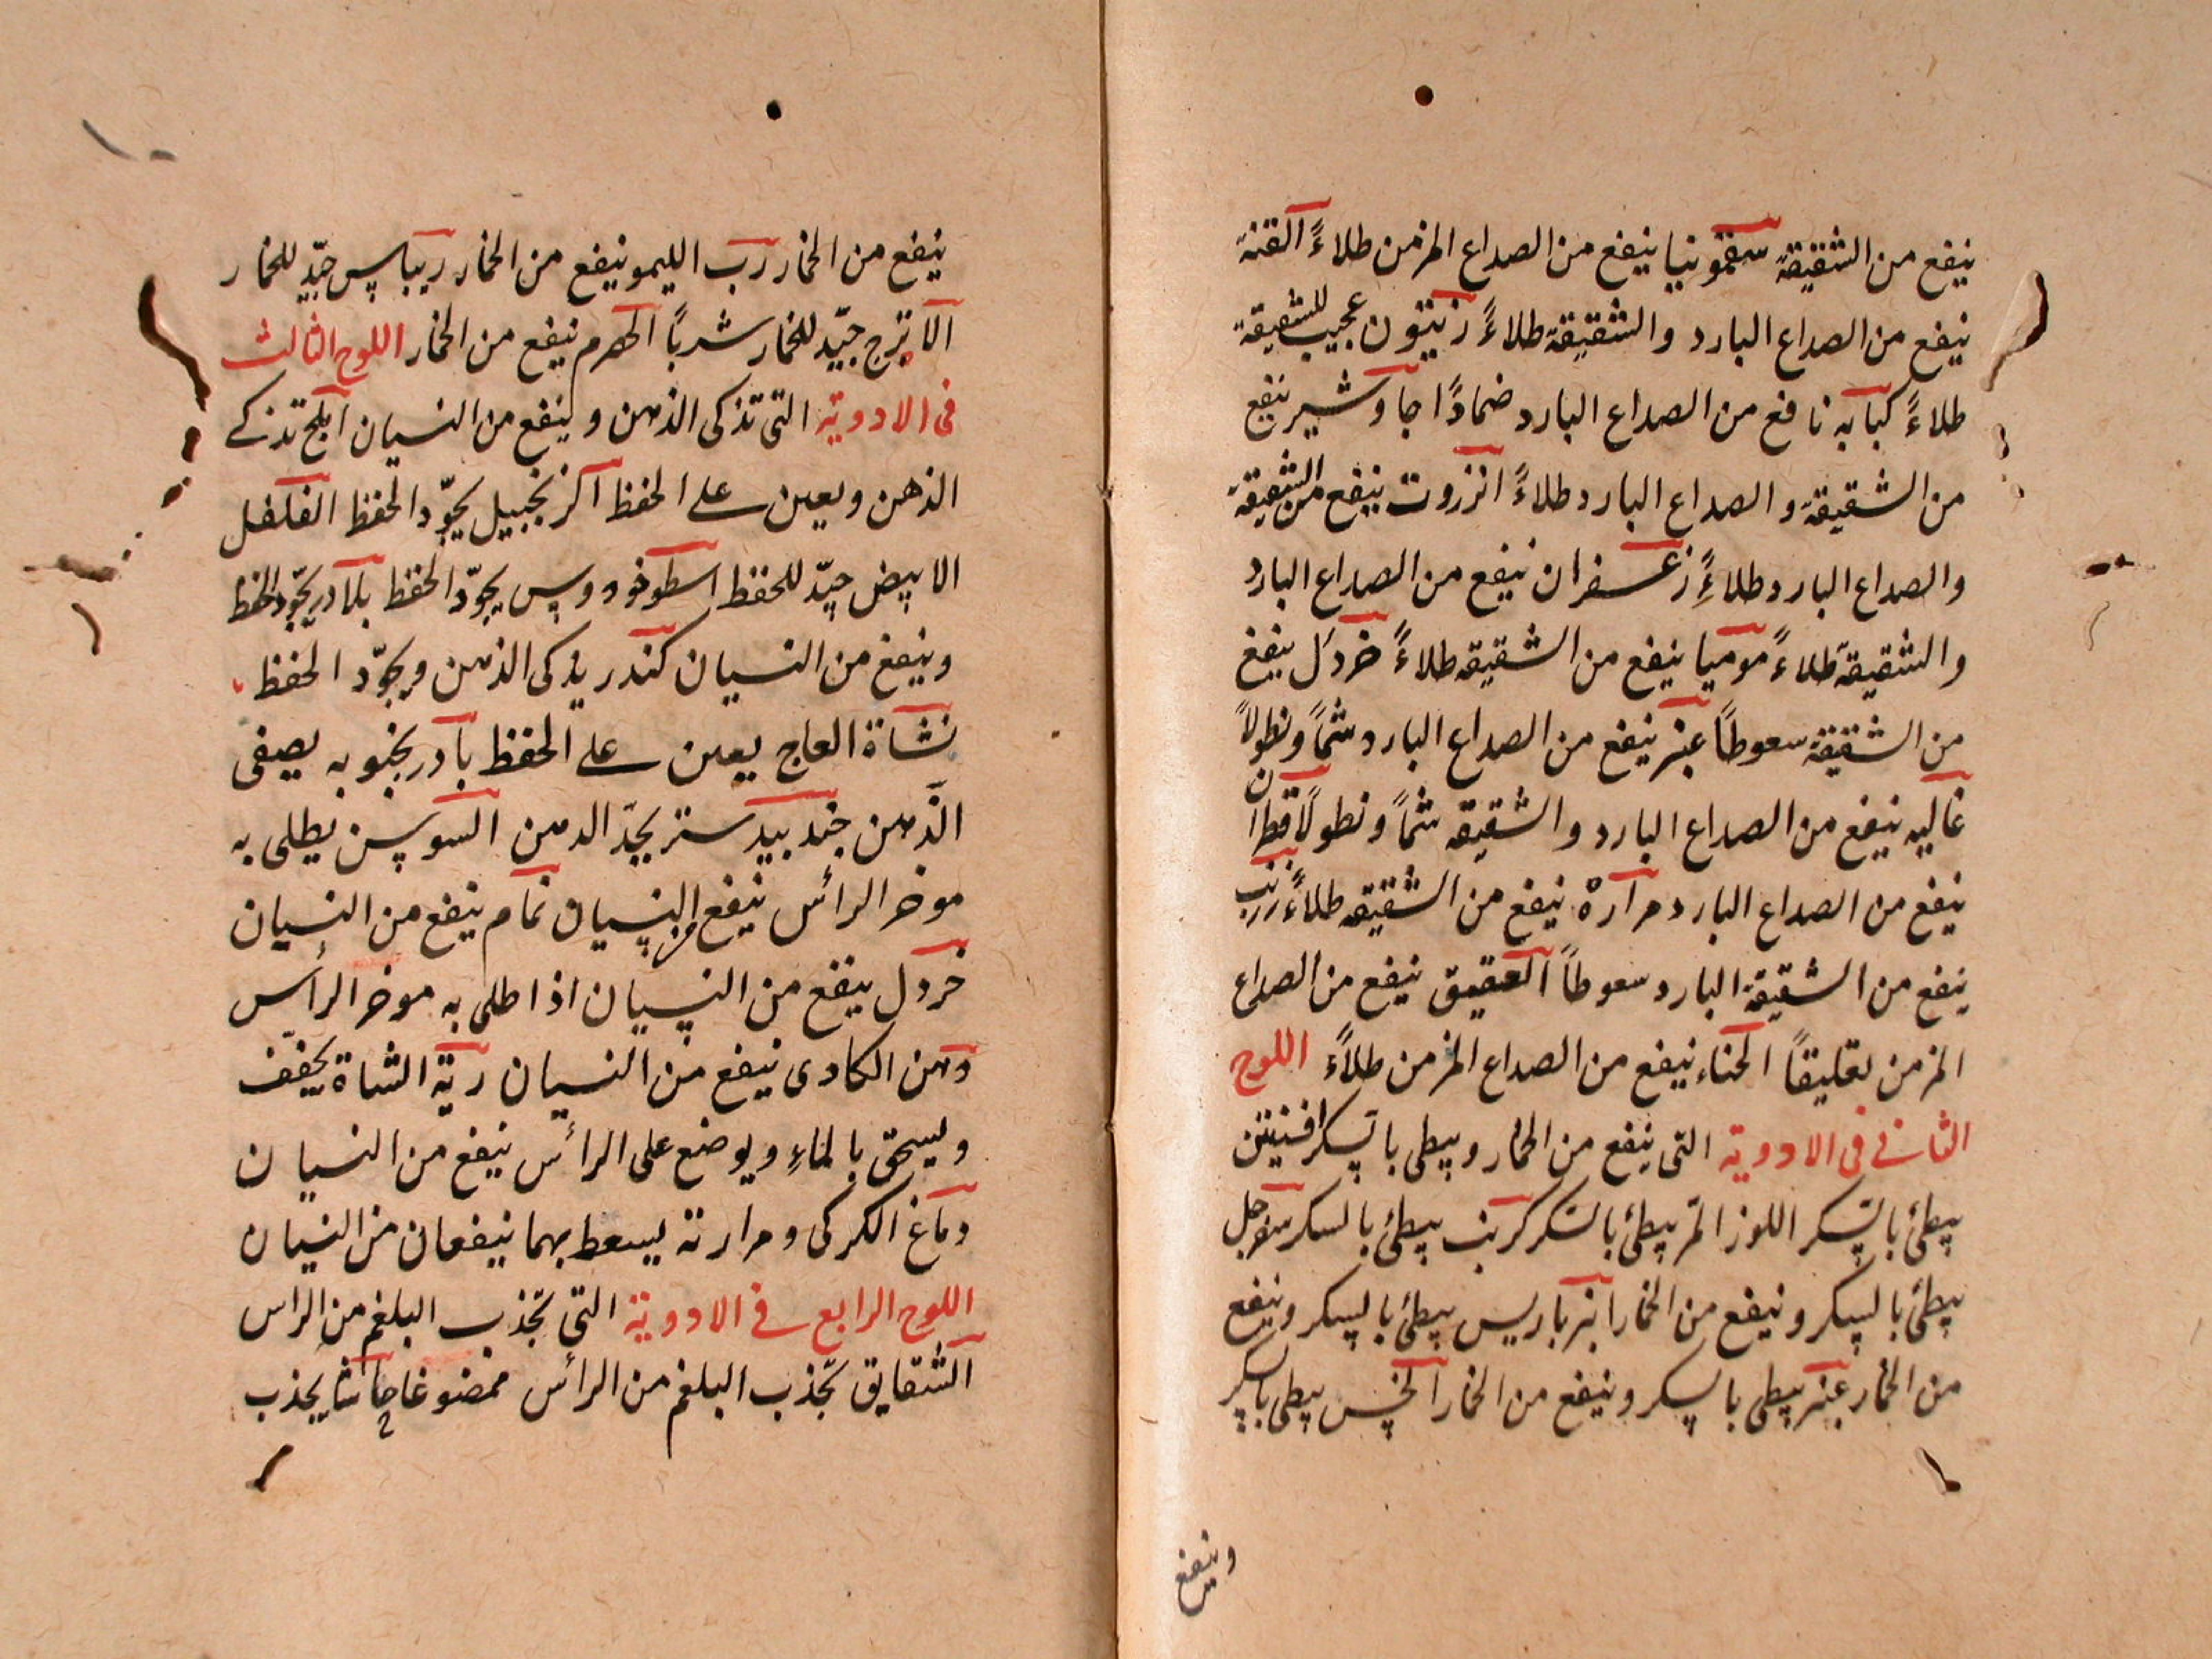 ينفع من الشقيقة سقمونيا ينفع من الصداع المزمن طلاءً القنة
ينفع من الصداع البارد والشقيقة طلاءً زيتون عجيب للشقيقة
طلاءً كبابه نافع من الصداع البارد ضمادًا جاوشير ينفع
من الشقيقة والصداع البارد طلاءً انزروت ينفع من الشقيقة
والصداع البارد طلاءً زعفران ينفع من الصداع البارد
والشقيقة طلاءً موميا ينفع من الشقيقه طلاءً خردل ينفع
من الشقيقة سعوطًا عنبر ينفع من الصداع البارد شمًا ونطولاً
غاليه ينفع من الصداع البارد والشقيقه شمًا ونطولًا قطران
ينفع من الصداع البارد مرارة ينفع من الشقيقه طلاءً زرنب
ينفع من الشقيقة البارد سعوطاً العقيق ينفع من الصداع
المزمن تعليقاً الحناء ينفع من الصداع المزمن طلاءً اللوح
الثانى فى الادوية التى ينفع من الخمار ويبطى بالسكر افسنتين
يبطئ بالسكر اللوز المر يبطئ بالسكر كرنب يبطئ بالسكر سفرجل
يبطئ بالسكر وينفع من الخمار انبرباريس يبطئ بالسكر وينفع
من الخمار عنبر يبطى بالسكر وينفع من الخمار الخس يبطى بالسكر
وينفع
ينفع من الخمار رب الليمو ينفع من الخمار ريباس جيّد للخمار
الاترج جيّد للخمار شربًا الحصرم ينفع من الخمار اللوح الثالث
فى الادوية التى تذكى الذهن وينفع من النسيان املج تذكى
الذهن ويعين على الحفظ الزنجبيل يجوّد الحفظ الفلفل
الابيض جيّد للحفظ اسطوخودوس يجوّد الحفظ بلادر يجوّد الحفظ
وينفع من النسيان كندر يذكى الذهن ويجوّد الحفظ
نشاة العاج يعين على الحفظ بادرنجبويه يصفى
الذّهن جندبيدستر يحدّ الذهن السوسن يطلى به
موخر الرأس ينفع من النسيان نمام ينفع من النسيان
خردل ينفع من النسيان اذا طلى به موخر الرأس
دهن الكادى ينفع من النسيان رية الشاة يجفّف
ويسحق بالماءِ ويوضع على الرأس ينفع من النسيان
دماغ الكركى ومرارته يسعط بهما ينفعان من النسيان
اللوح الرابع فى الادوية التى تجذب البلغم من الراس
الشقايق تجذب البلغم من الرأس ممضوغا حاشا يجذب